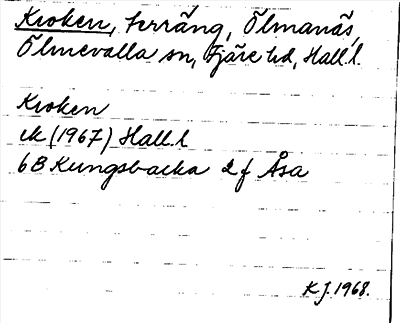 Kroken, terräng, Ölmanäs,
Ölmevalla sn, Fjäre hd, Hall.l.
Kroken
ek (1967) Hall.l
6B Kungsbacka 2f Åsa
KJ. 1968.